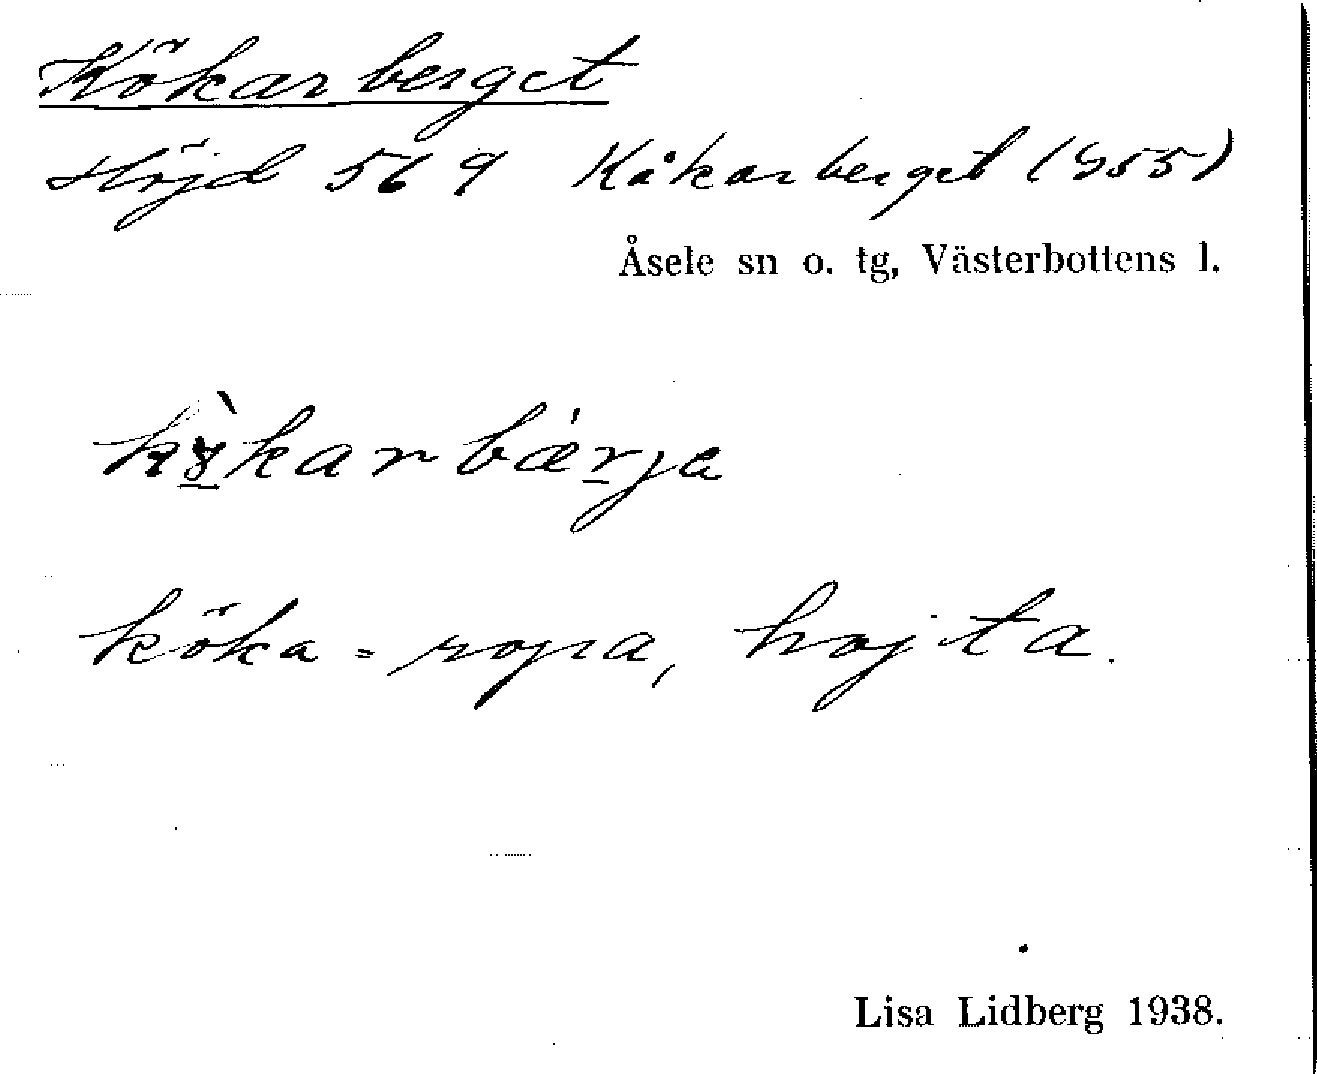 Kökarberget
Höjd 569 Kåkarberget (S55)
Åsele sn o. tg, Västerbottens l.
bærja
köka = ropa, hojta.
Lisa Lidberg 1938.